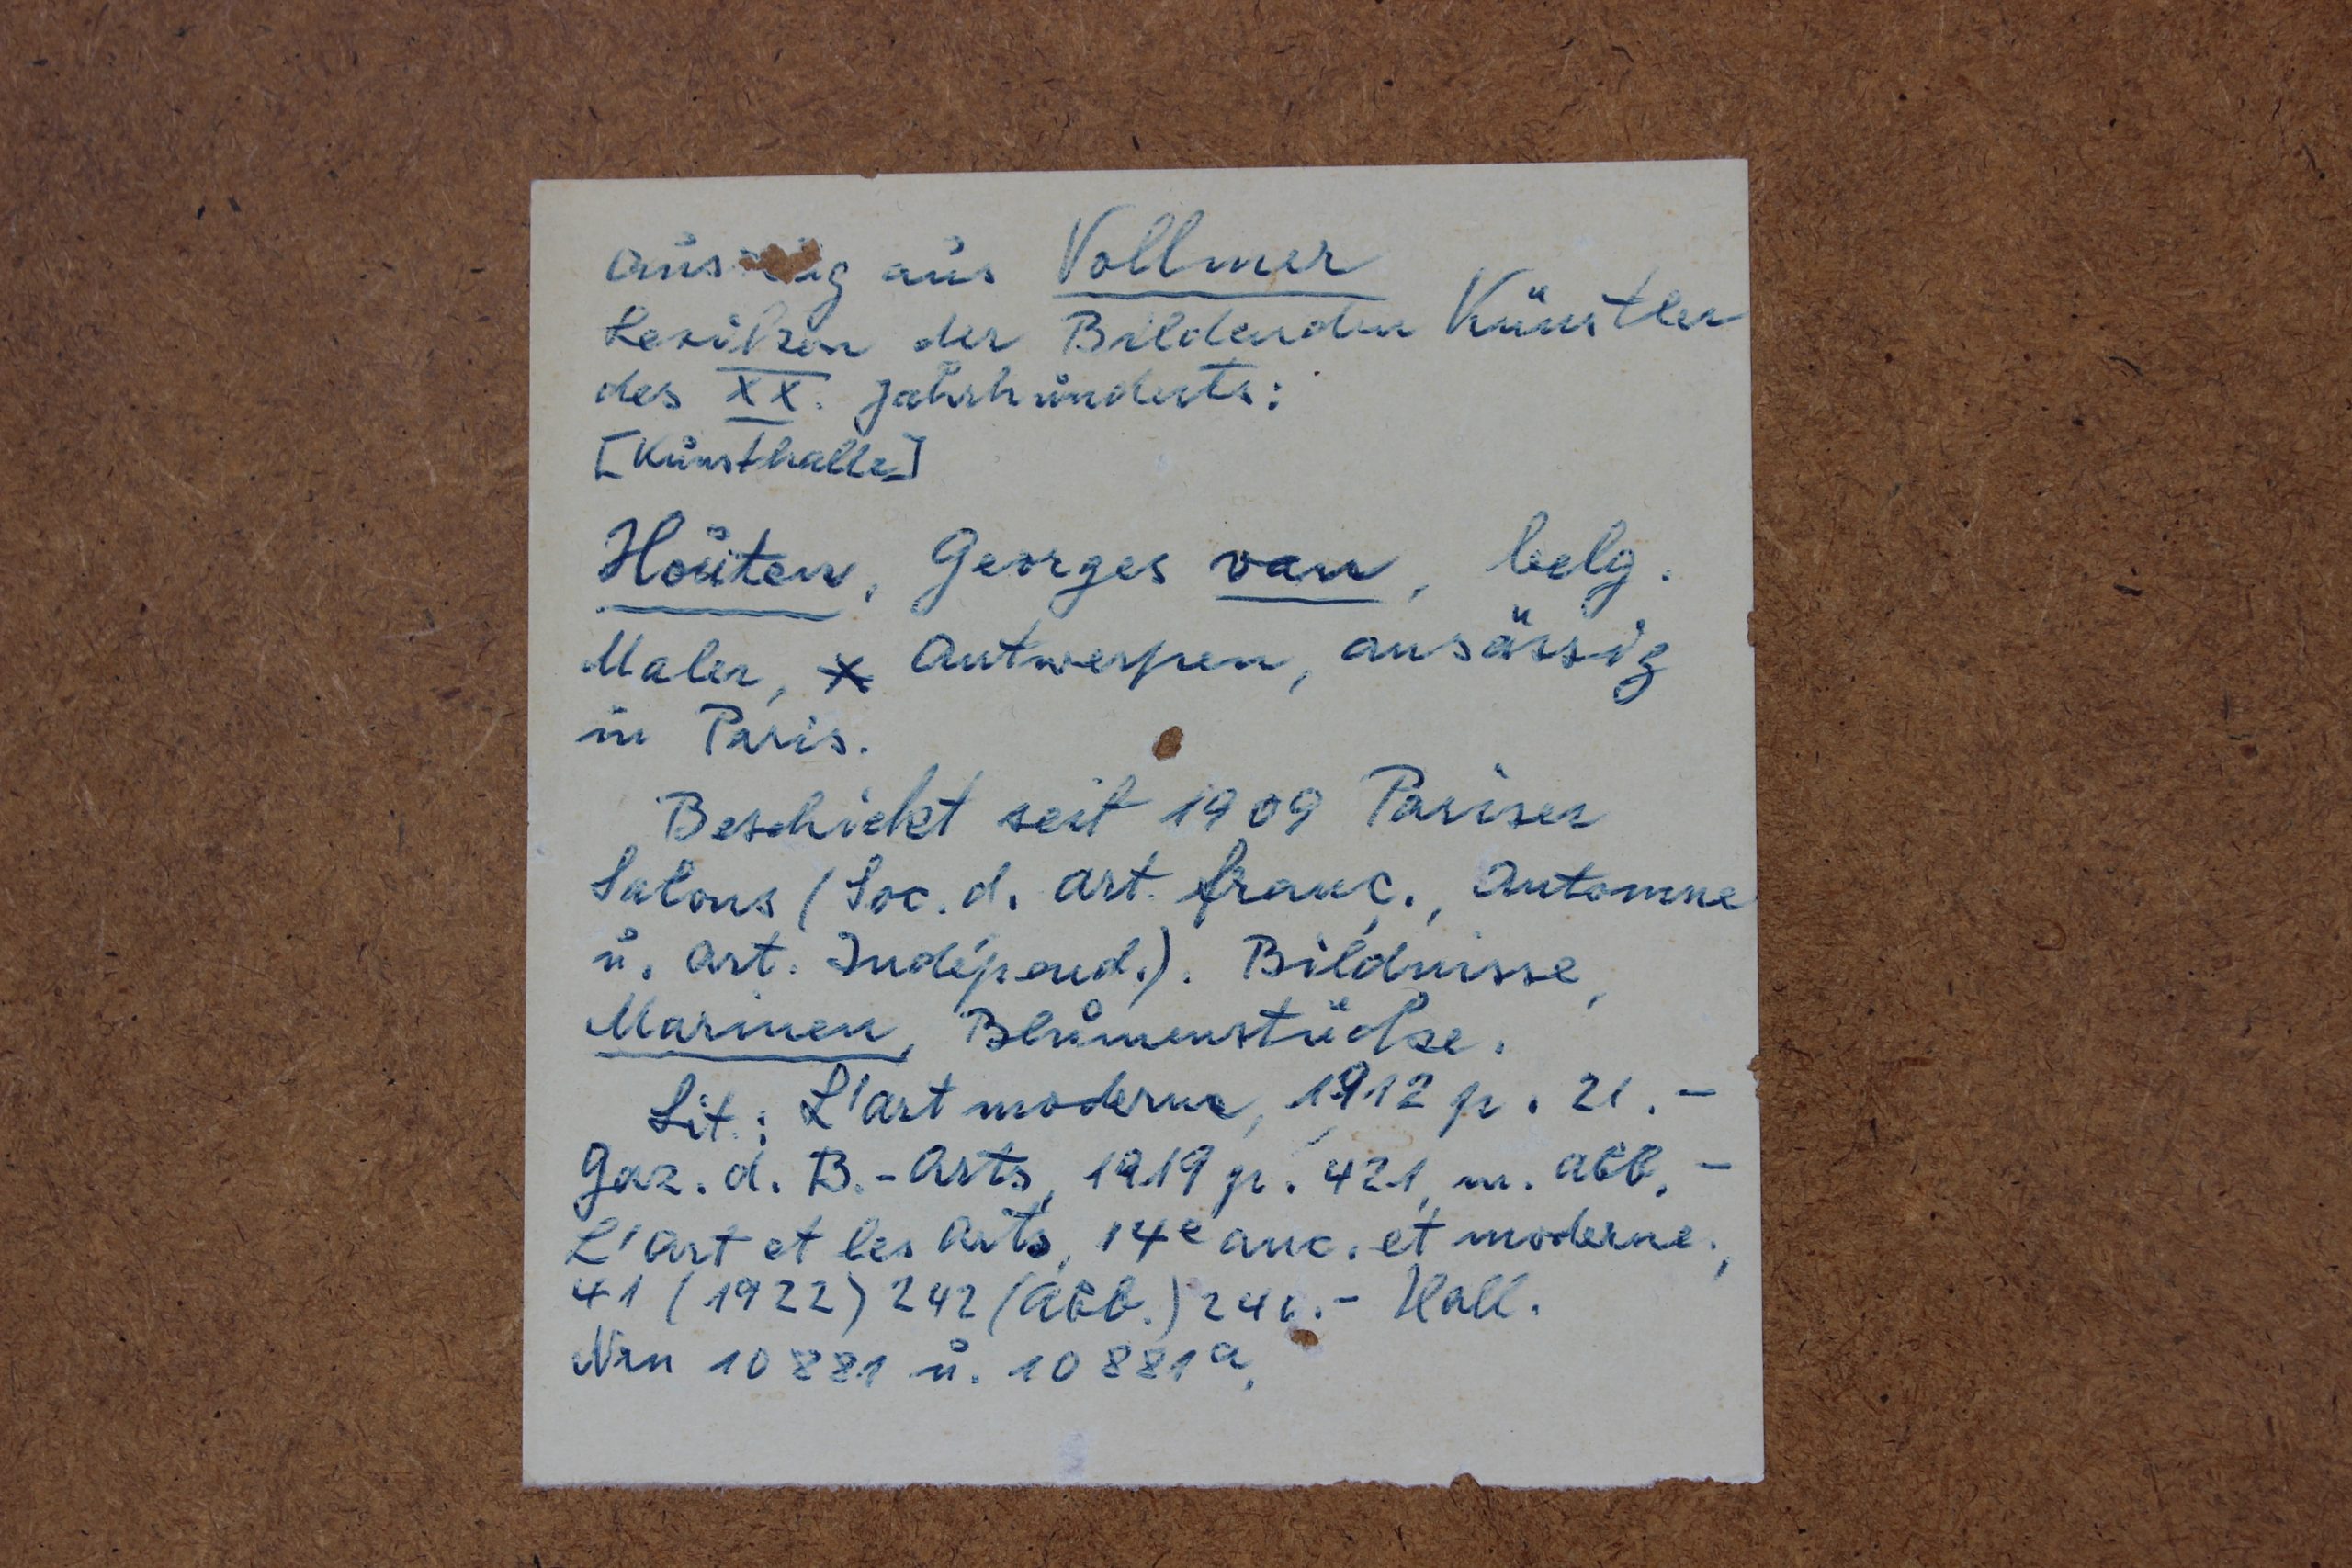 Auszug aus Vollmer
Lexikon der Bildenden Künstler
des XX. Jahrhunderts:
[Kunsthalle]
Houten, Georges van, belg.
Maler, * Antwerpen, ansässig
in Paris.
Beschickt seit 1909 Pariser
Salons (Soc. d. Art. franç., Automne
u. Art. Indépend.). Bildnisse,
Marinen, Blumenstücke.
Lit.: L'art moderne, 1912 p. 21. -
Gaz. d. B.-Arts, 1919 p. 421, m. Abb. -
L'Art et les Arts, 14e anc. et moderne,
41 (1922) 242 (Abb.) - Hall.
Nrn 10881 u. 10881a.